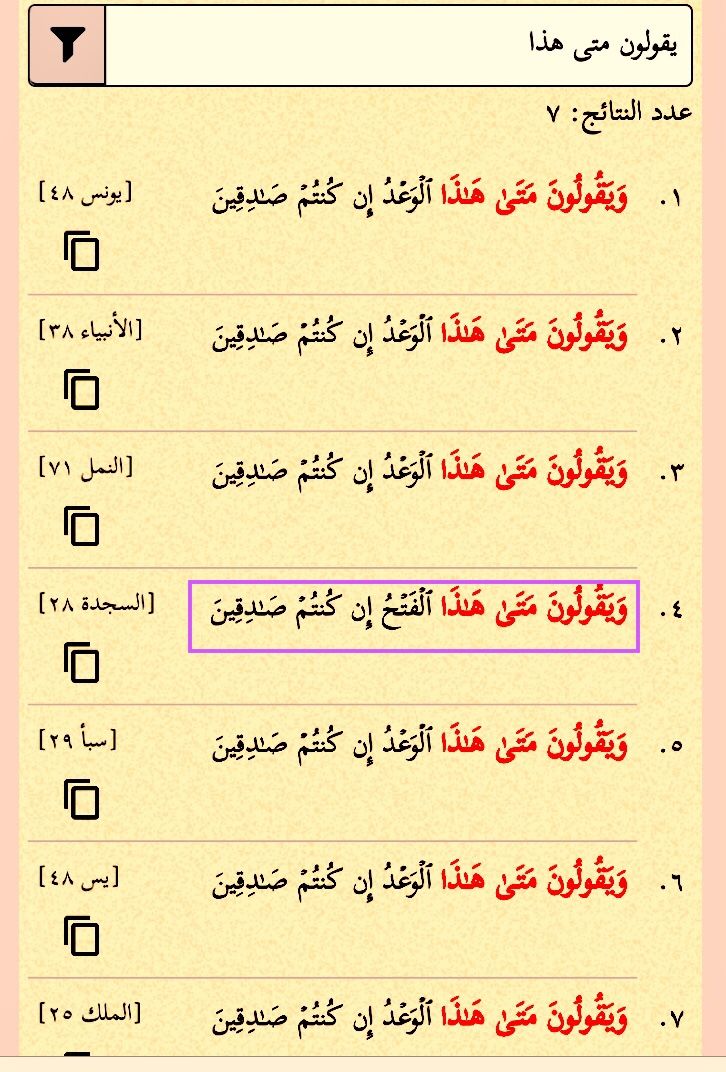 يقولون متى هذا
عدد النتائج: ٧
١. وَيَقُولُونَ مَتَىٰ هَـٰذَا ٱلْوَعْدُ إِن كُنتُمْ صَـٰدِقِينَ [يونس ٤٨]
٢. وَيَقُولُونَ مَتَىٰ هَـٰذَا ٱلْوَعْدُ إِن كُنتُمْ صَـٰدِقِينَ [الأنبياء ٣٨]
٣. وَيَقُولُونَ مَتَىٰ هَـٰذَا ٱلْوَعْدُ إِن كُنتُمْ صَـٰدِقِينَ [النمل ٧١]
٤. وَيَقُولُونَ مَتَىٰ هَـٰذَا ٱلْفَتْحُ إِن كُنتُمْ صَـٰدِقِينَ [السجدة ٢٨]
٥. وَيَقُولُونَ مَتَىٰ هَـٰذَا ٱلْوَعْدُ إِن كُنتُمْ صَـٰدِقِينَ [سبأ ٢٩]
٦. وَيَقُولُونَ مَتَىٰ هَـٰذَا ٱلْوَعْدُ إِن كُنتُمْ صَـٰدِقِينَ [يس ٤٨]
٧. وَيَقُولُونَ مَتَىٰ هَـٰذَا ٱلْوَعْدُ إِن كُنتُمْ صَـٰدِقِينَ [الملك ٢٥]